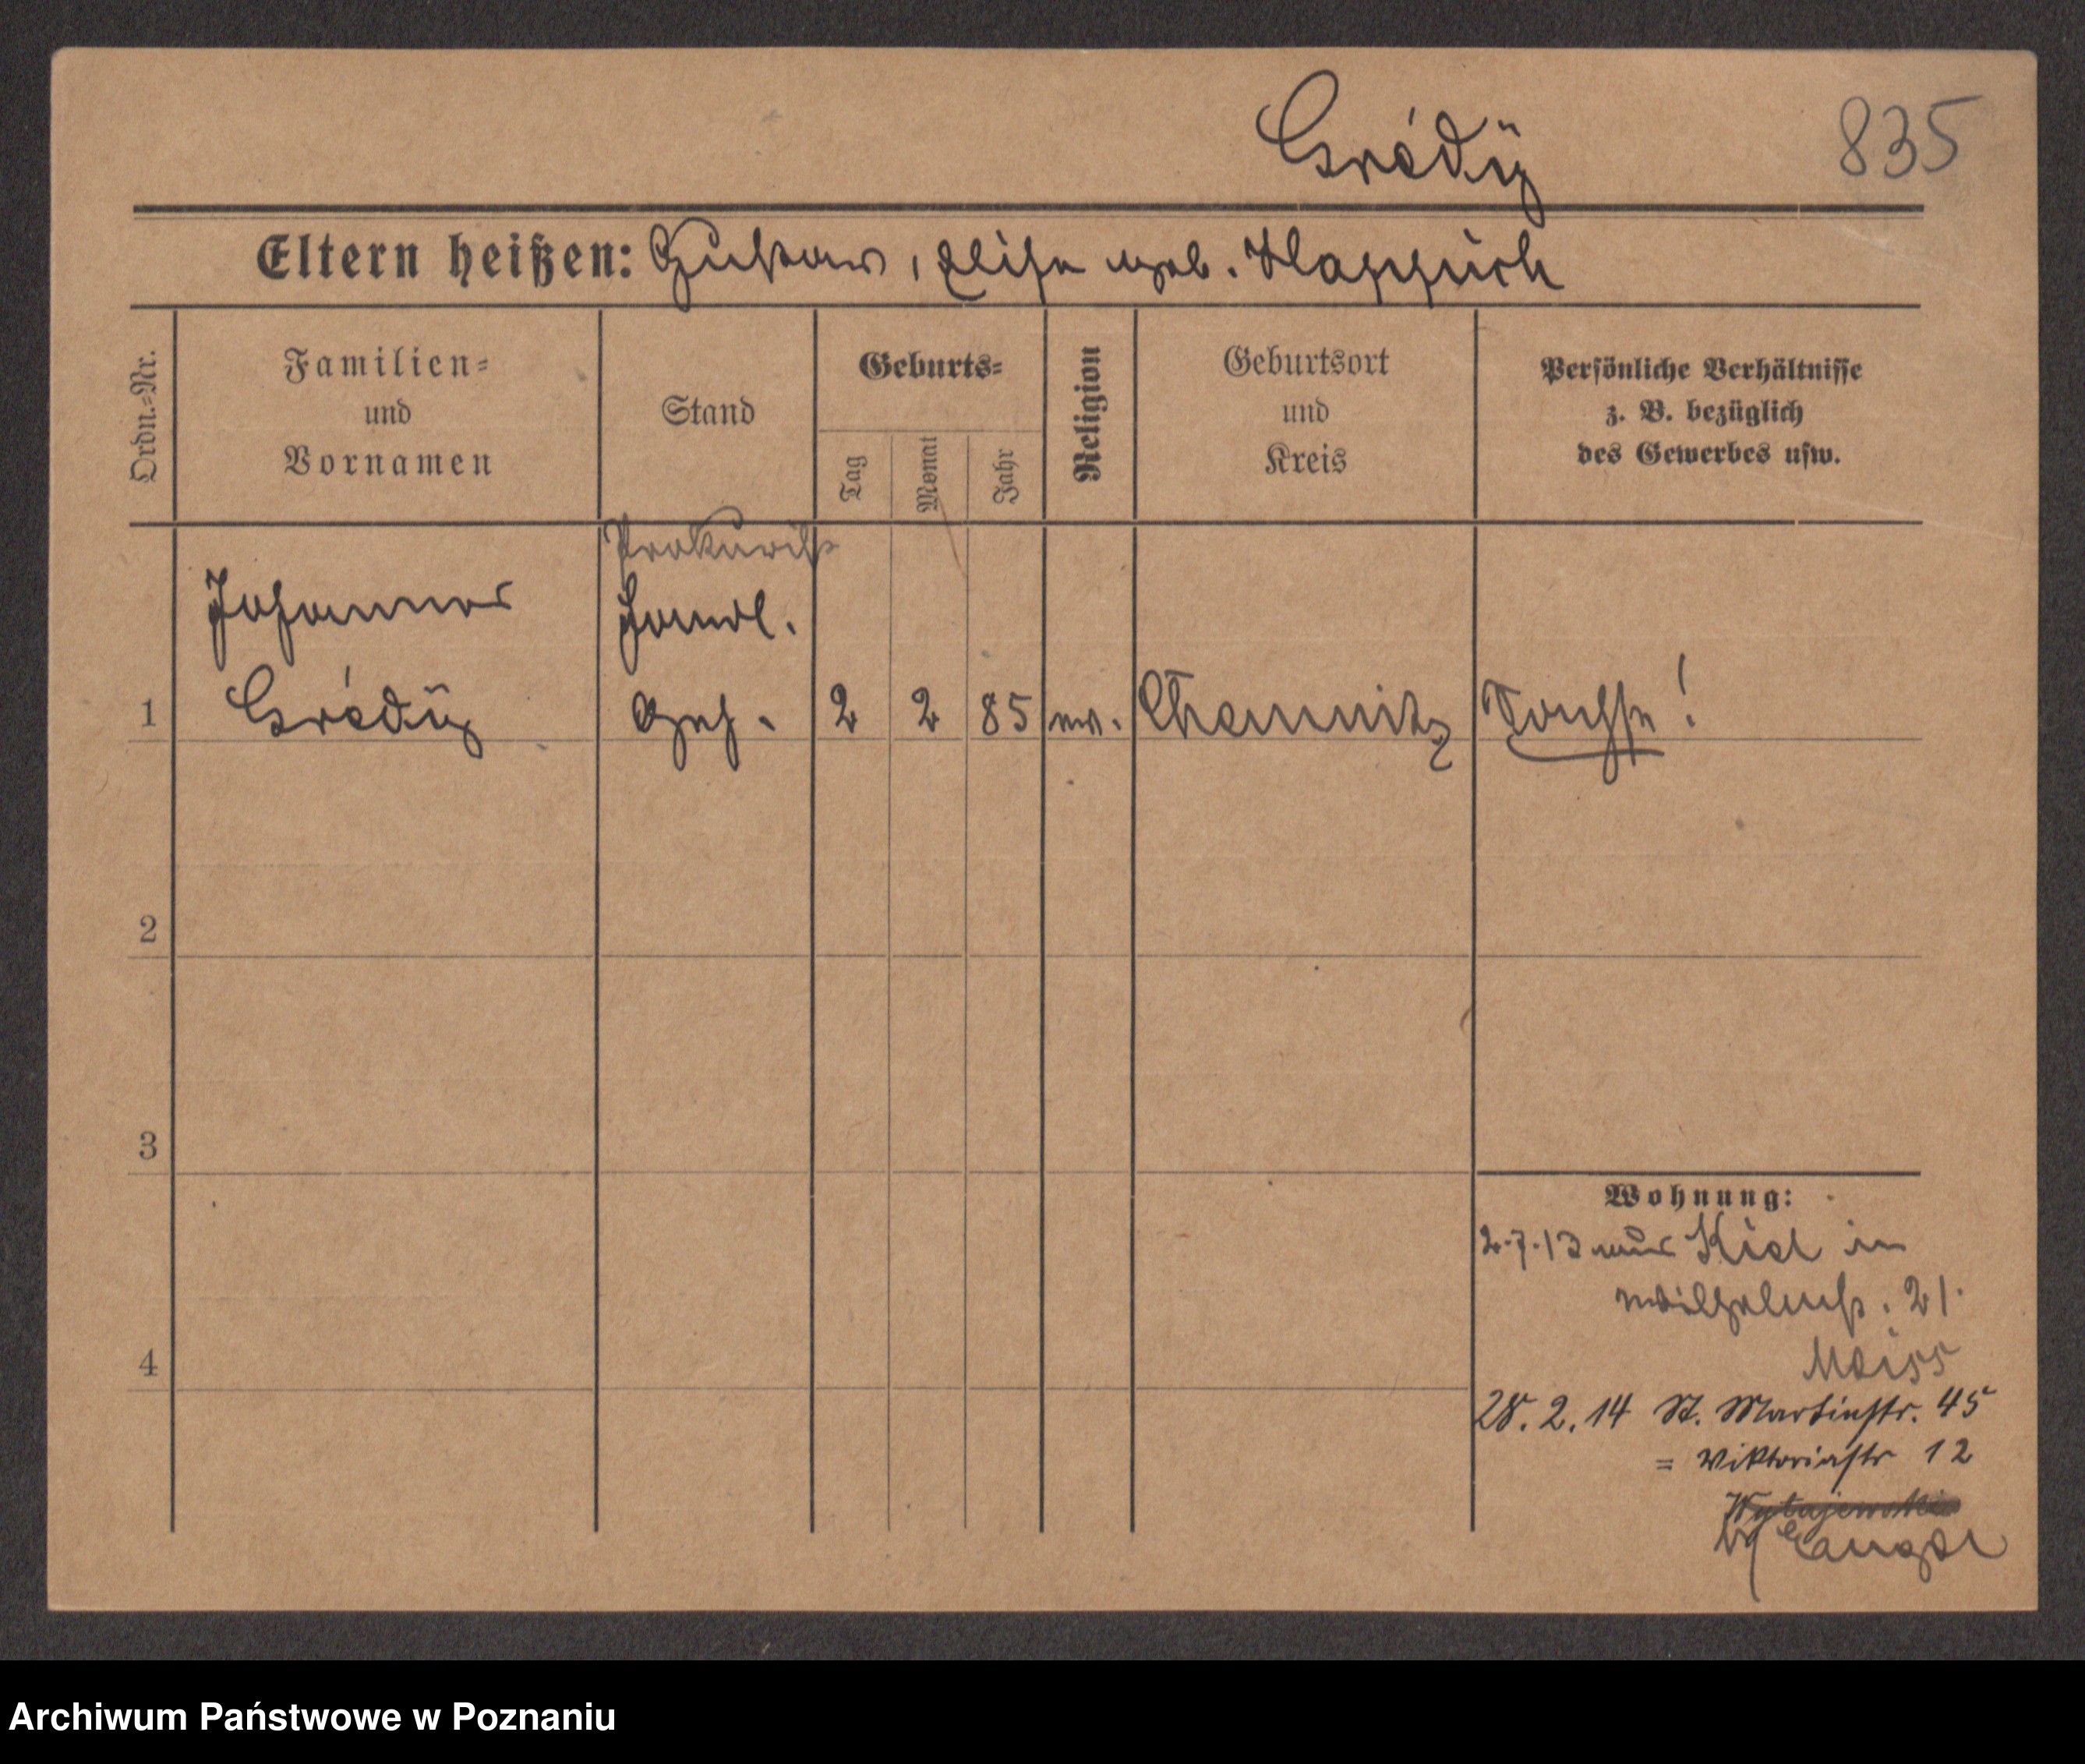 Grédÿ 835
Eltern heißen: Gustav, Elise geb. Klappich
Ordn.=Nr. Familien= und Vornamen Stand Geburts= Tag Monat Jahr Religion Geburtsort und Kreis Persönliche Verhältnisse z. B. bezüglich des Gewerbes usw.
Prokurist
Johannes Handl.
1 Grédÿ Geh. 2 2 85 ev. Chemnitz !
2
3
Wohnung:
2.7.13 aus Kiel in
Wilhelmstr. 21.
Meiss
4
28.2.14 St. Martinstr. 45
= Viktoriastr 12
Archiwum Państwowe w Poznaniu